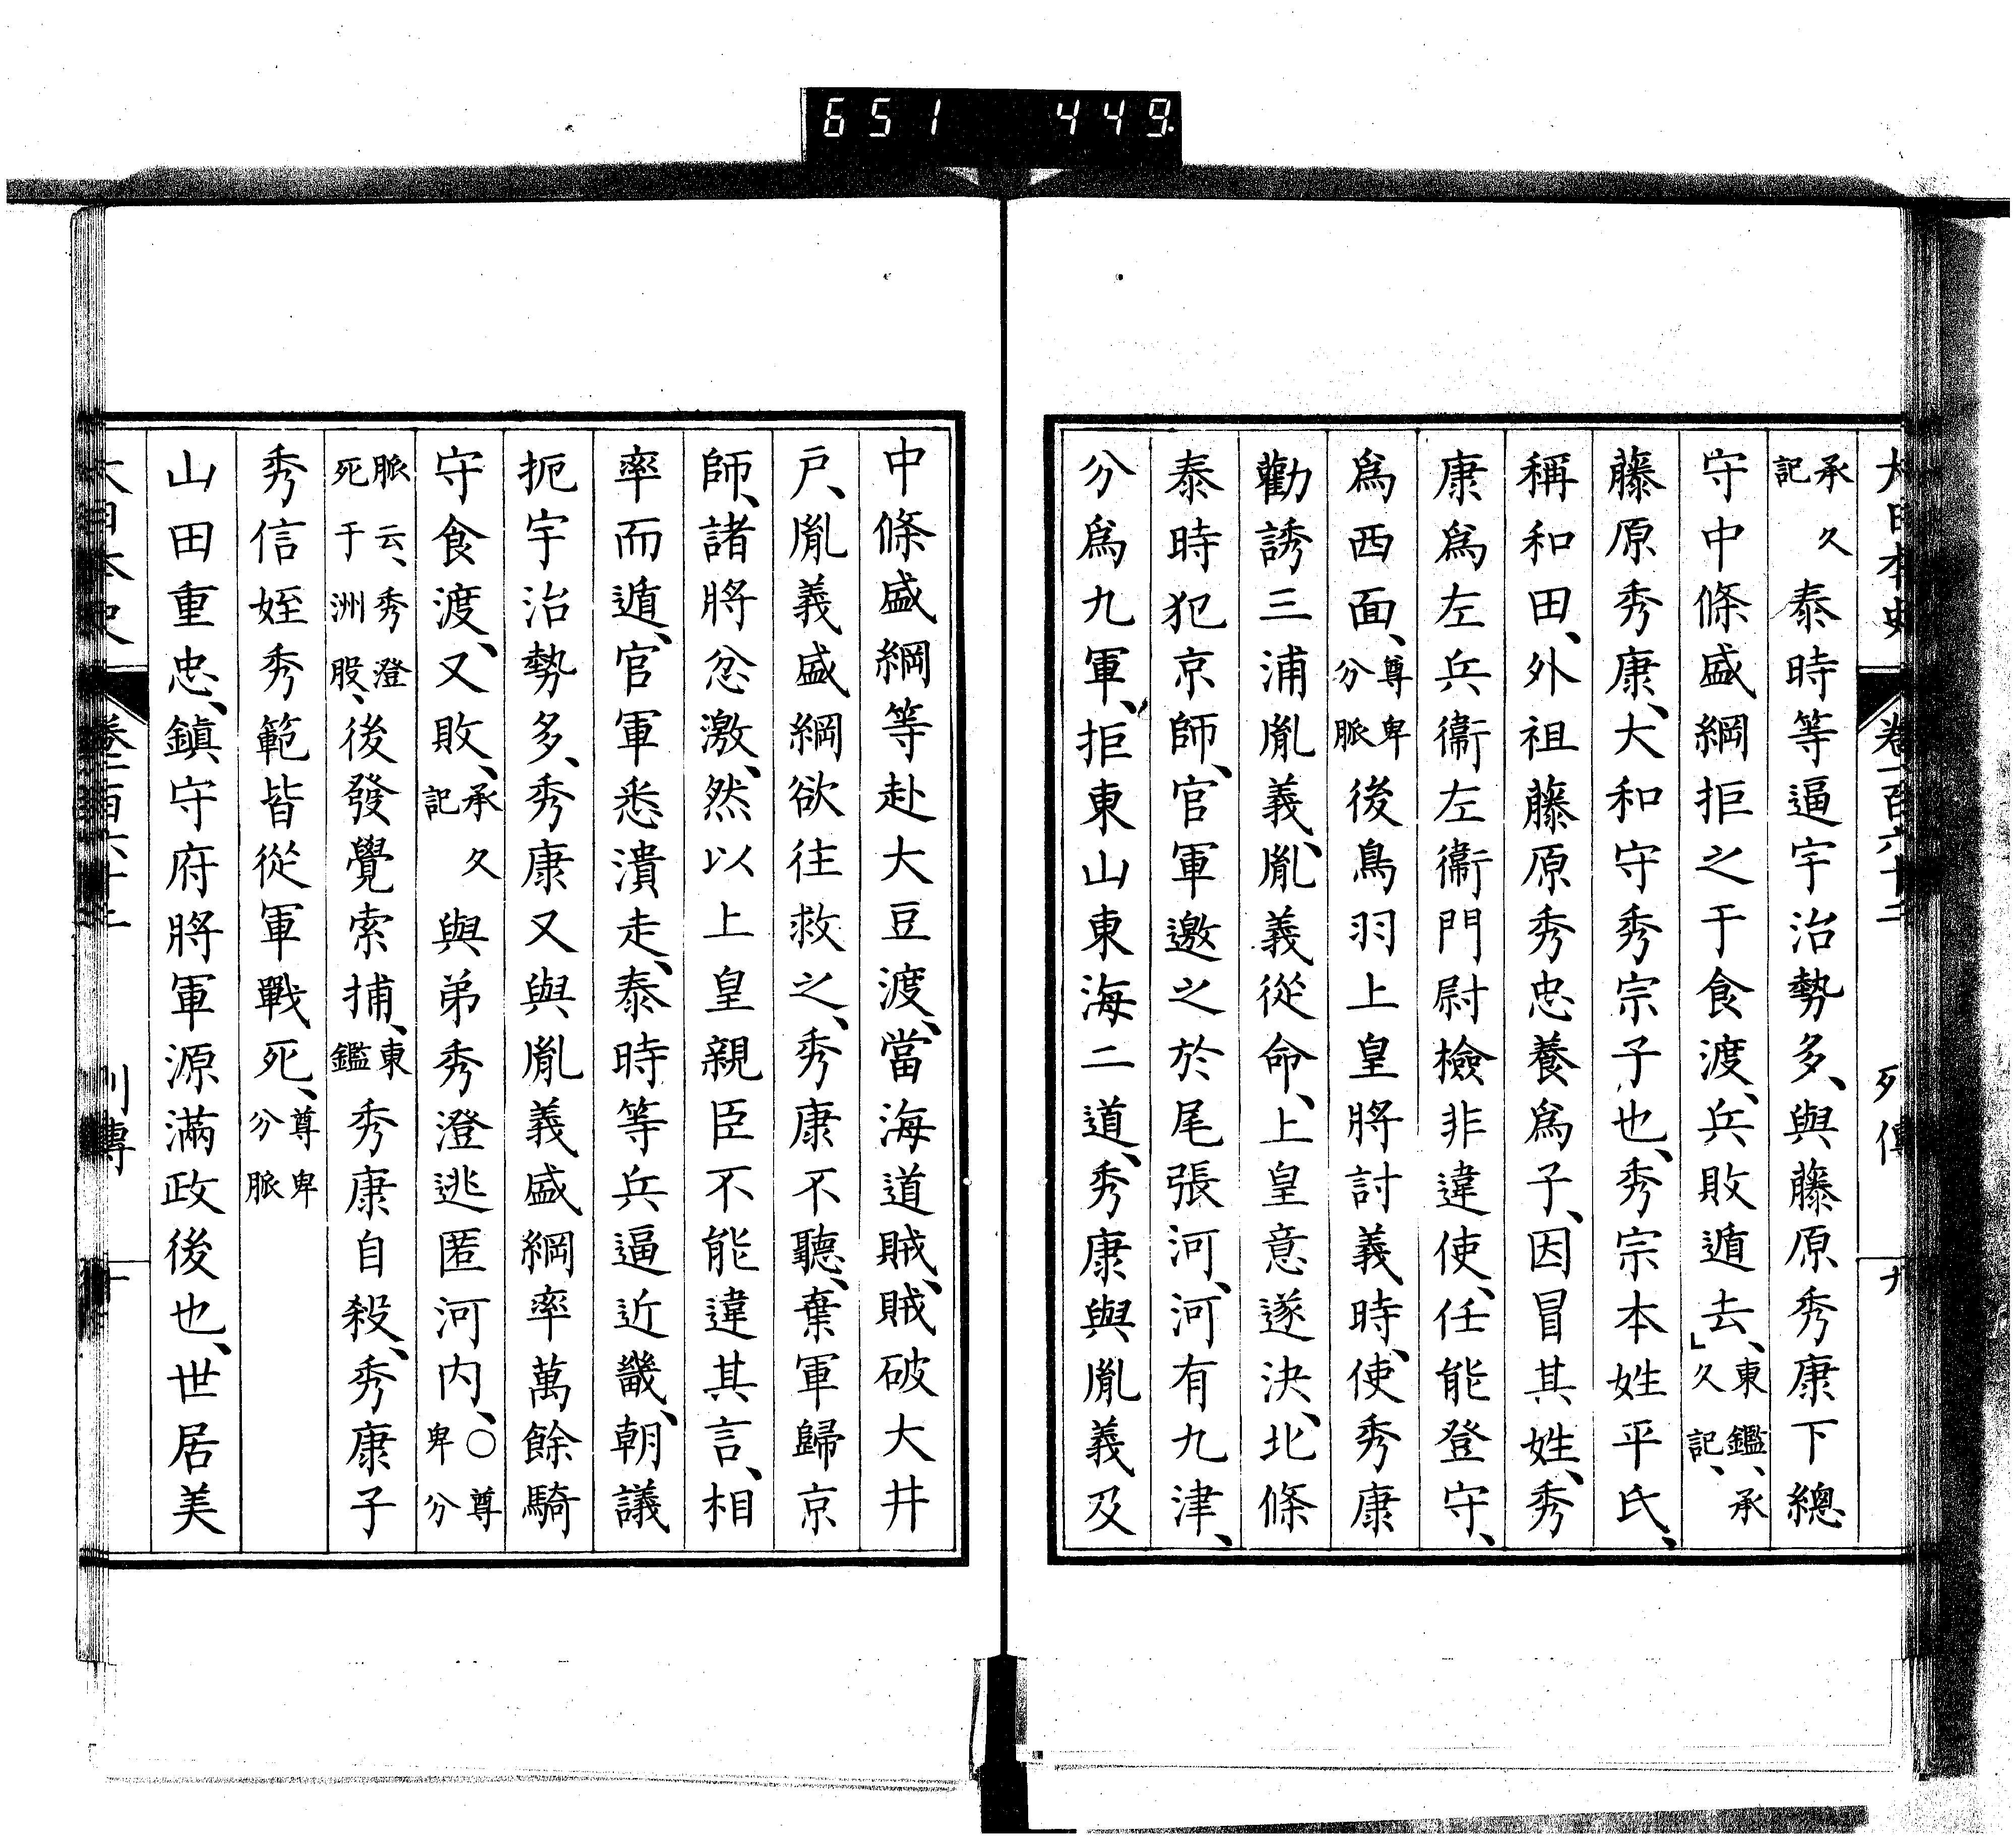 651 449
大日本史 卷一百六十二 列傳 九
承久記泰時等逼宇治勢多、與藤原秀康下總
守中條盛綱拒之于食渡、兵敗遁去、」東鑑、承久記、
藤原秀康、大和守秀宗子也、秀宗本姓平氏、
稱和田、外祖藤原秀忠養爲子、因冒其姓、秀
康爲左兵衞左衞門尉檢非違使、任能登守、
爲西面、尊卑分脈後鳥羽上皇將討義時、使秀康
勸誘三浦胤義、胤義從命、上皇意遂決、北條
泰時犯京師、官軍邀之於尾張河、河有九津、
分爲九軍、拒東山東海二道、秀康與胤義及
中條盛綱等赴大豆渡、當海道賊、賊破大井
戸、胤義盛綱欲往救之、秀康不聽、棄軍歸京
師、諸將忿激、然以上皇親臣不能違其言、相
率而遁、官軍悉潰走、泰時等兵逼近畿、朝議
扼宇治勢多、秀康又與胤義盛綱率萬餘騎
守食渡、又敗、承久記與弟秀澄逃匿河内、○尊卑分
脈云、秀澄死于洲股、後發覺索捕、東鑑秀康自殺、秀康子
秀信姪秀範皆從軍戰死、尊卑分脈
山田重忠、鎭守府將軍源滿政後也、世居美
大日本史 卷一百六十二 列傳 十